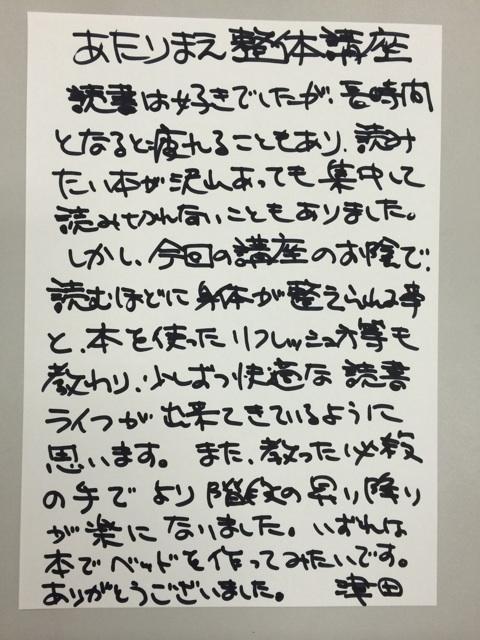 あたりまえ整体講座
読書は好きでしたが、長時間
となると疲れることもあり、読み
たい本が沢山あっても集中して
読みきれないこともありました。
しかし、今回の講座のお陰で、
読むほどに身体が整えられる事
と、本を使ったリフレッシュ方等も
教わり、少しずつ快適な読書
ライフが出来てきているように
思います。また、教った必殺
の手でより階段の昇り降り
が楽になりました。いずれは
本でベッドを作ってみたいです。
ありがとうございました。 津田